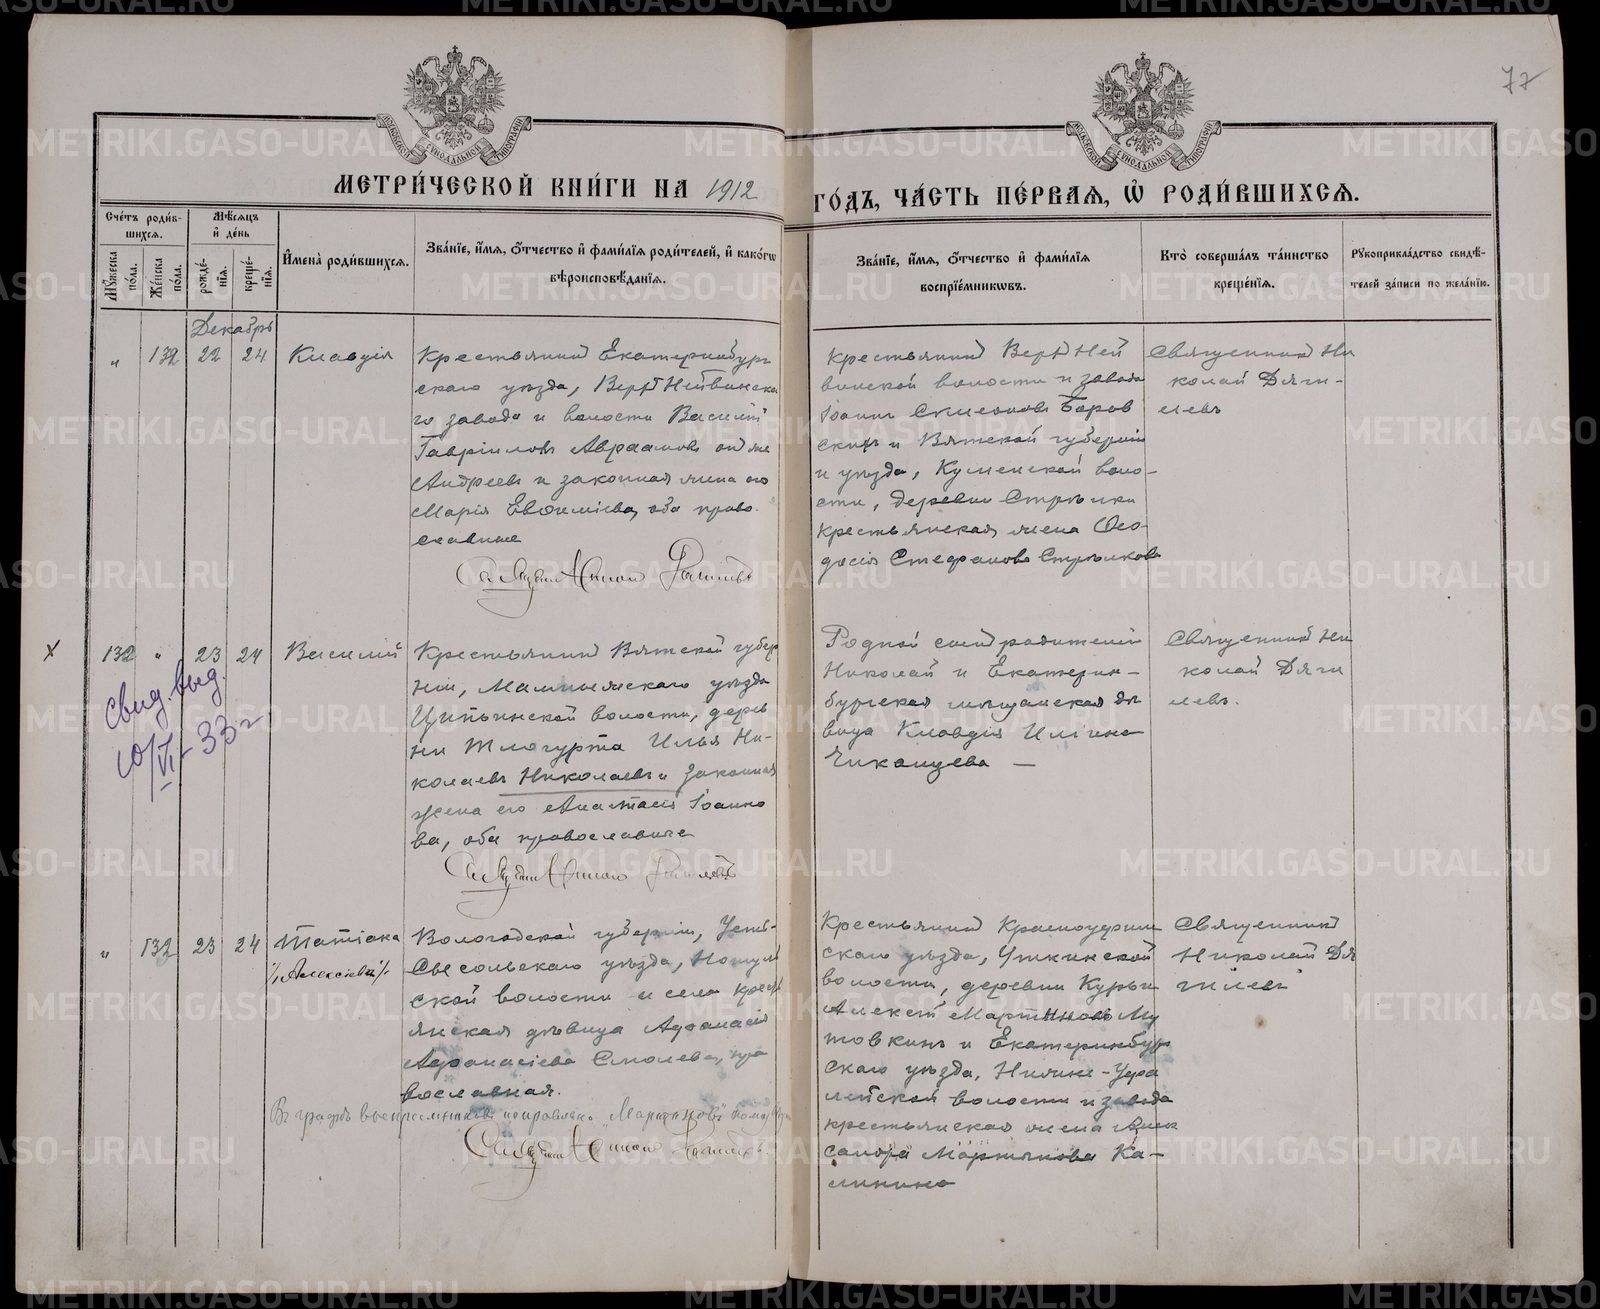 77
МЕТРИ́ЧЕСКОЙ КНИ́ГИ НА 1912 ГО́ДЪ, ЧА́СТЬ ПЕ́РВАѦ, Ѡ҆ РОДИ́ВШИХСѦ.
Сче́тъ роди́в-
шихсѧ.
Мꙋ́жеска по́ла.
Же́нска по́ла.
Мѣ́сѧцъ
и҆ де́нь
рожде́-
нїѧ.
креще́-
нїѧ.
И҆мена̀ роди́вшихсѧ.
Зва́нїе, и҆́мѧ, ѻ҆́тчество и҆ фами́лїѧ роди́телей, и҆ како́гѡ
вѣроисповѣ́данїѧ.
Зва́нїе, и҆́мѧ, ѻ҆́тчество и҆ фами́лїѧ
воспрїе́мникѡвъ.
Кто̀ соверша́лъ та́инство
креще́нїѧ.
Рꙋкоприкла́дство свидѣ́-
телей за́писи по жела́нїю.
Декабрь
„ 132 22 24 Клавдія
Крестьянинъ Екатеринбург
скаго уѣзда, Верхъ Нейвинска
го завода и волости Василій
Гавріиловъ Авраамовъ он же
Андреевъ и законная жена его
Марія Евѳиміева, оба право-
славные
Крестьянинъ Верхъ Ней
винской волости и завода
Іоаннъ Симеоновъ Боров
скихъ и Вятской губерніи
и уѣзда, Куменской воло-
сти, деревни Стрѣлки
крестьянская жена Ѳео-
досія Стефанова Стрѣлкова
Священникъ Ни
колай Дяги-
левъ
Священникъ Николай Дягилевъ
х 132 „ 23 24 Василій
Свид. выд.
10/VI-33 г
Крестьянинъ Вятской губер
ніи, Малмыжскаго уѣзда
Ципьинской волости, дерев
ни Николаевъ Илья Ни-
колаевъ Николаевъ и законная
жена его Анастасія Іоанно
ва, оба православные
Родной сынъ родителей
Николай и Екатерин-
бургская мѣщанская дѣ
вица Клавдія Иліина
Чиканцева —
Священникъ Ни
колай Дяги
левъ.
Священникъ Николай Дягилевъ
„ 132 23 24 Татіана
/„Алексіева“/
Вологодской губерніи, Усть-
Сысольскаго уѣзда, Ношуль
ской волости и села крестья
янская дѣвица Аѳанасія
Аѳанасіева Смолева, пра
вославная.
Въ графѣ воспріемниковъ исправлено „Мартиновъ“
Священникъ Николай Дягилевъ.
Крестьянинъ Красноуфим
скаго уѣзда, Уткинской
волости, деревни Курьи
Алексѣй Мартиновъ Му
товкинъ и Екатеринбург
скаго уѣзда, Нижне-Уфа
лейской волости и завода
крестьянская жена Алек
сандра Мартынова Ка-
линина
Священникъ
Николай Дя
гилевъ